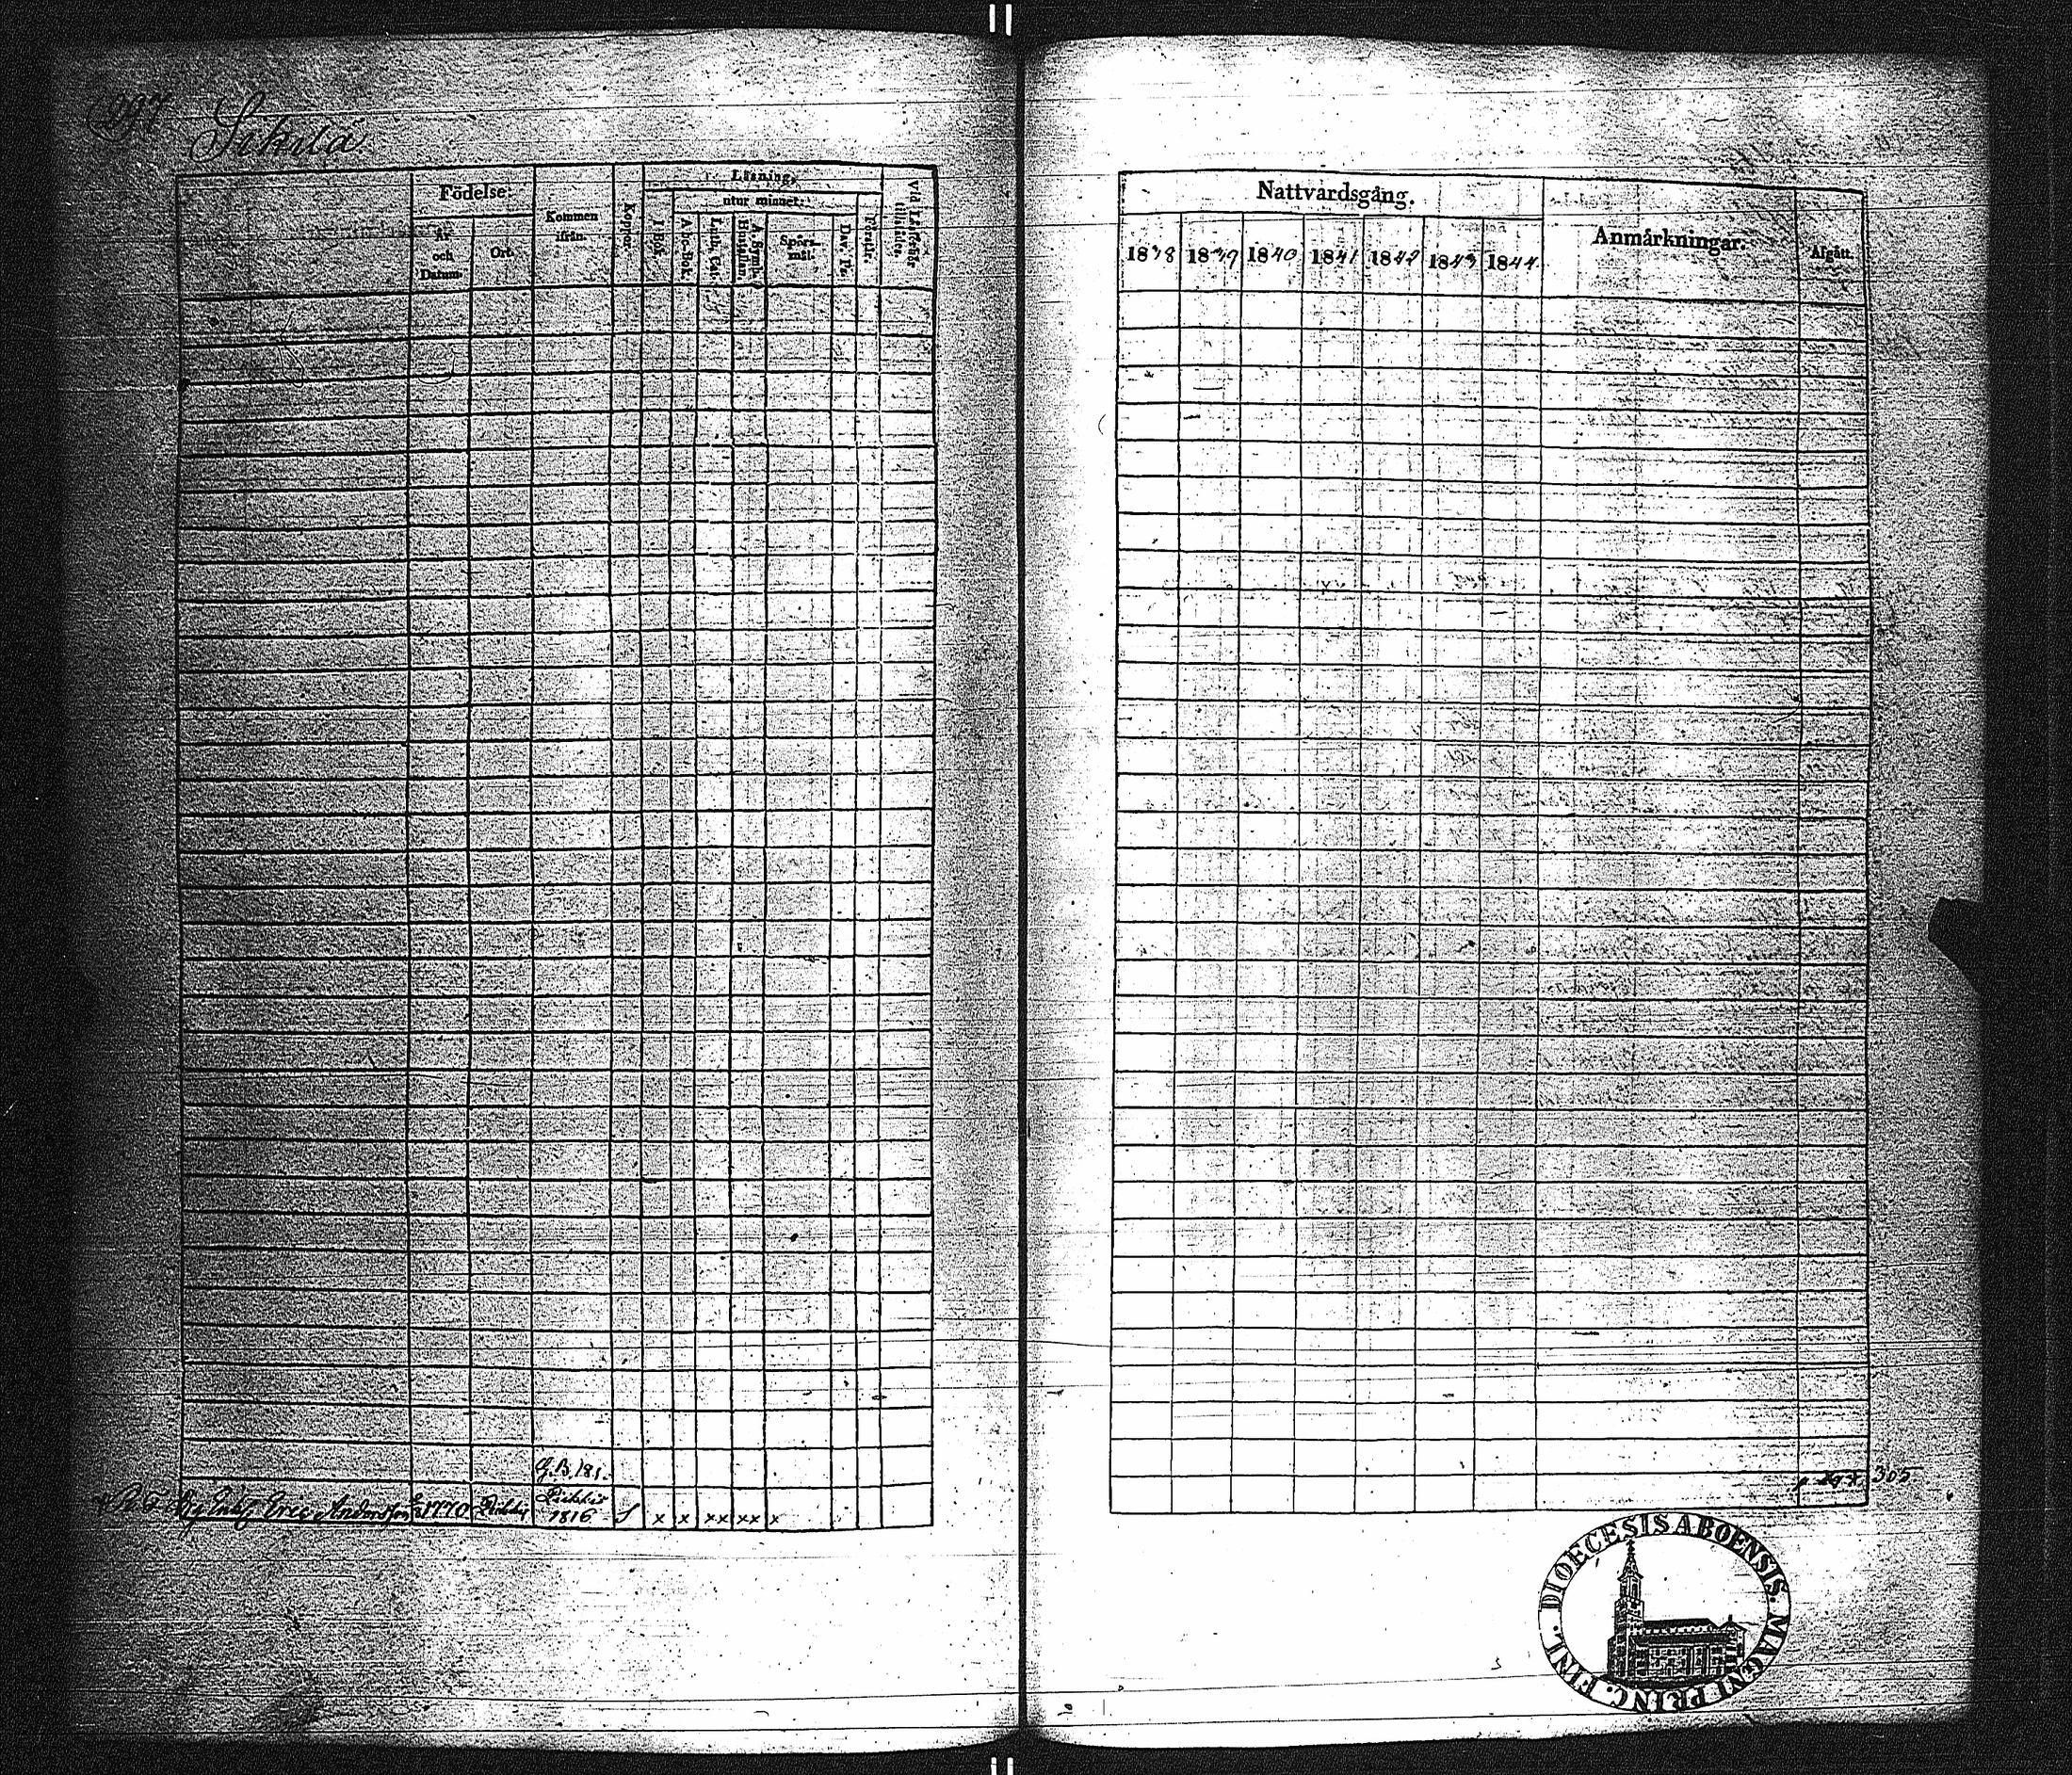 297
Sikilä
Födelse:
År och Datum.
Ort.
Kommen ifrån.
Koppor.
Läsning,
I Bok.
utur minnet:
A-b-c-Bok.
Luth. Cat.
Hustaflan.
A. Symb.
Spörsmål.
Dav. Ps.
Förstår.
Vid Läsförhör tillstädes.
G. B. 181.
Eric Andersson 1770
1816 S x x xx xx x
Nattvardsgång.
Anmärkningar.
Afgått.
1838 1839 1840 1841 1842 1843 1844
305
DIOECESIS ABOENSIS. MAGNI PRINC. FINL.